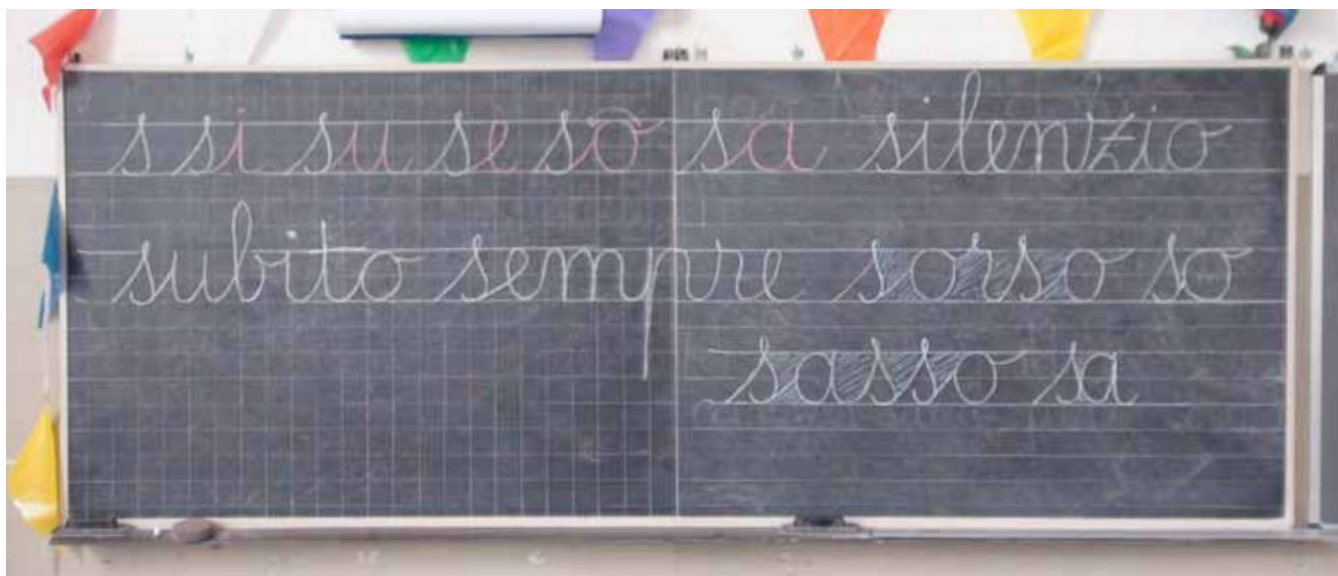 s si su se so sa silenzio
subito sempre sorso so
sasso sa